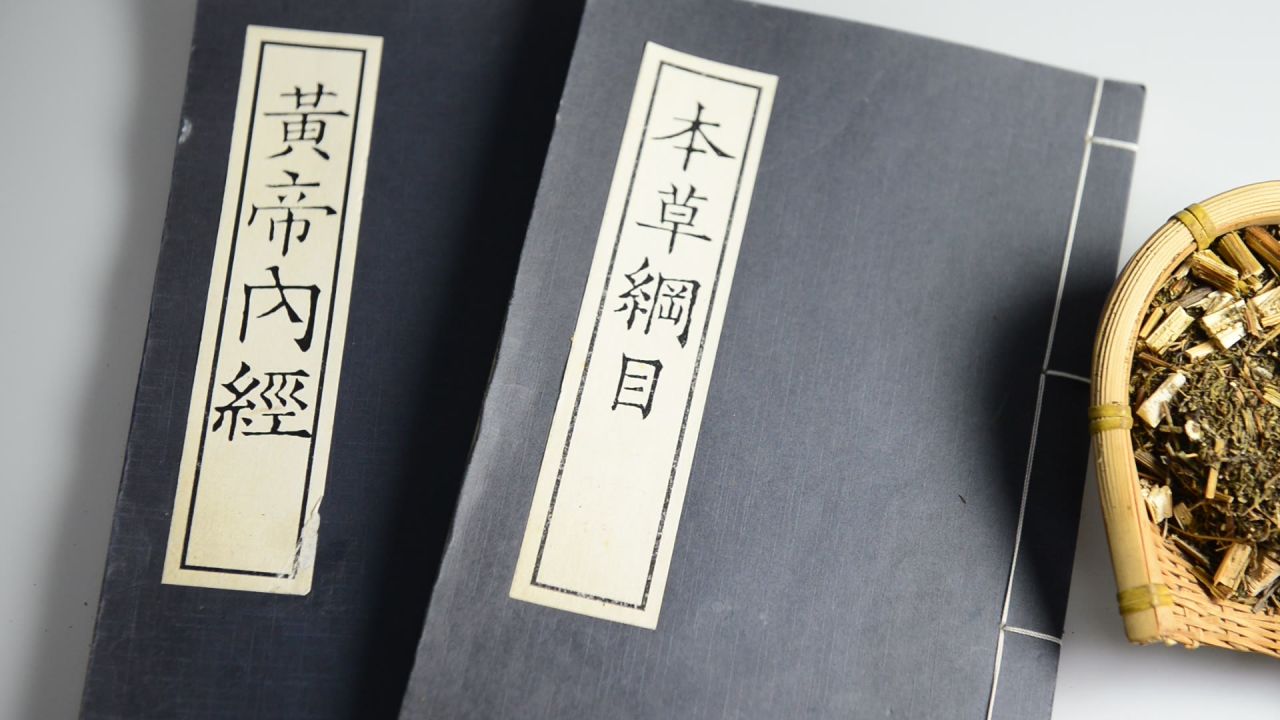 黃帝內經
本草綱目